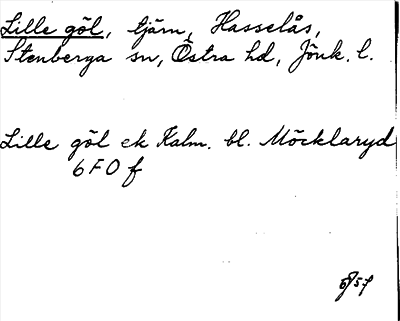 Lille göl, tjärn, Hasselås,
Stenberga sn, Östra hd, Jönk. l.
Lille göl ek Kalm. bl. Möcklaryd
6 F O f